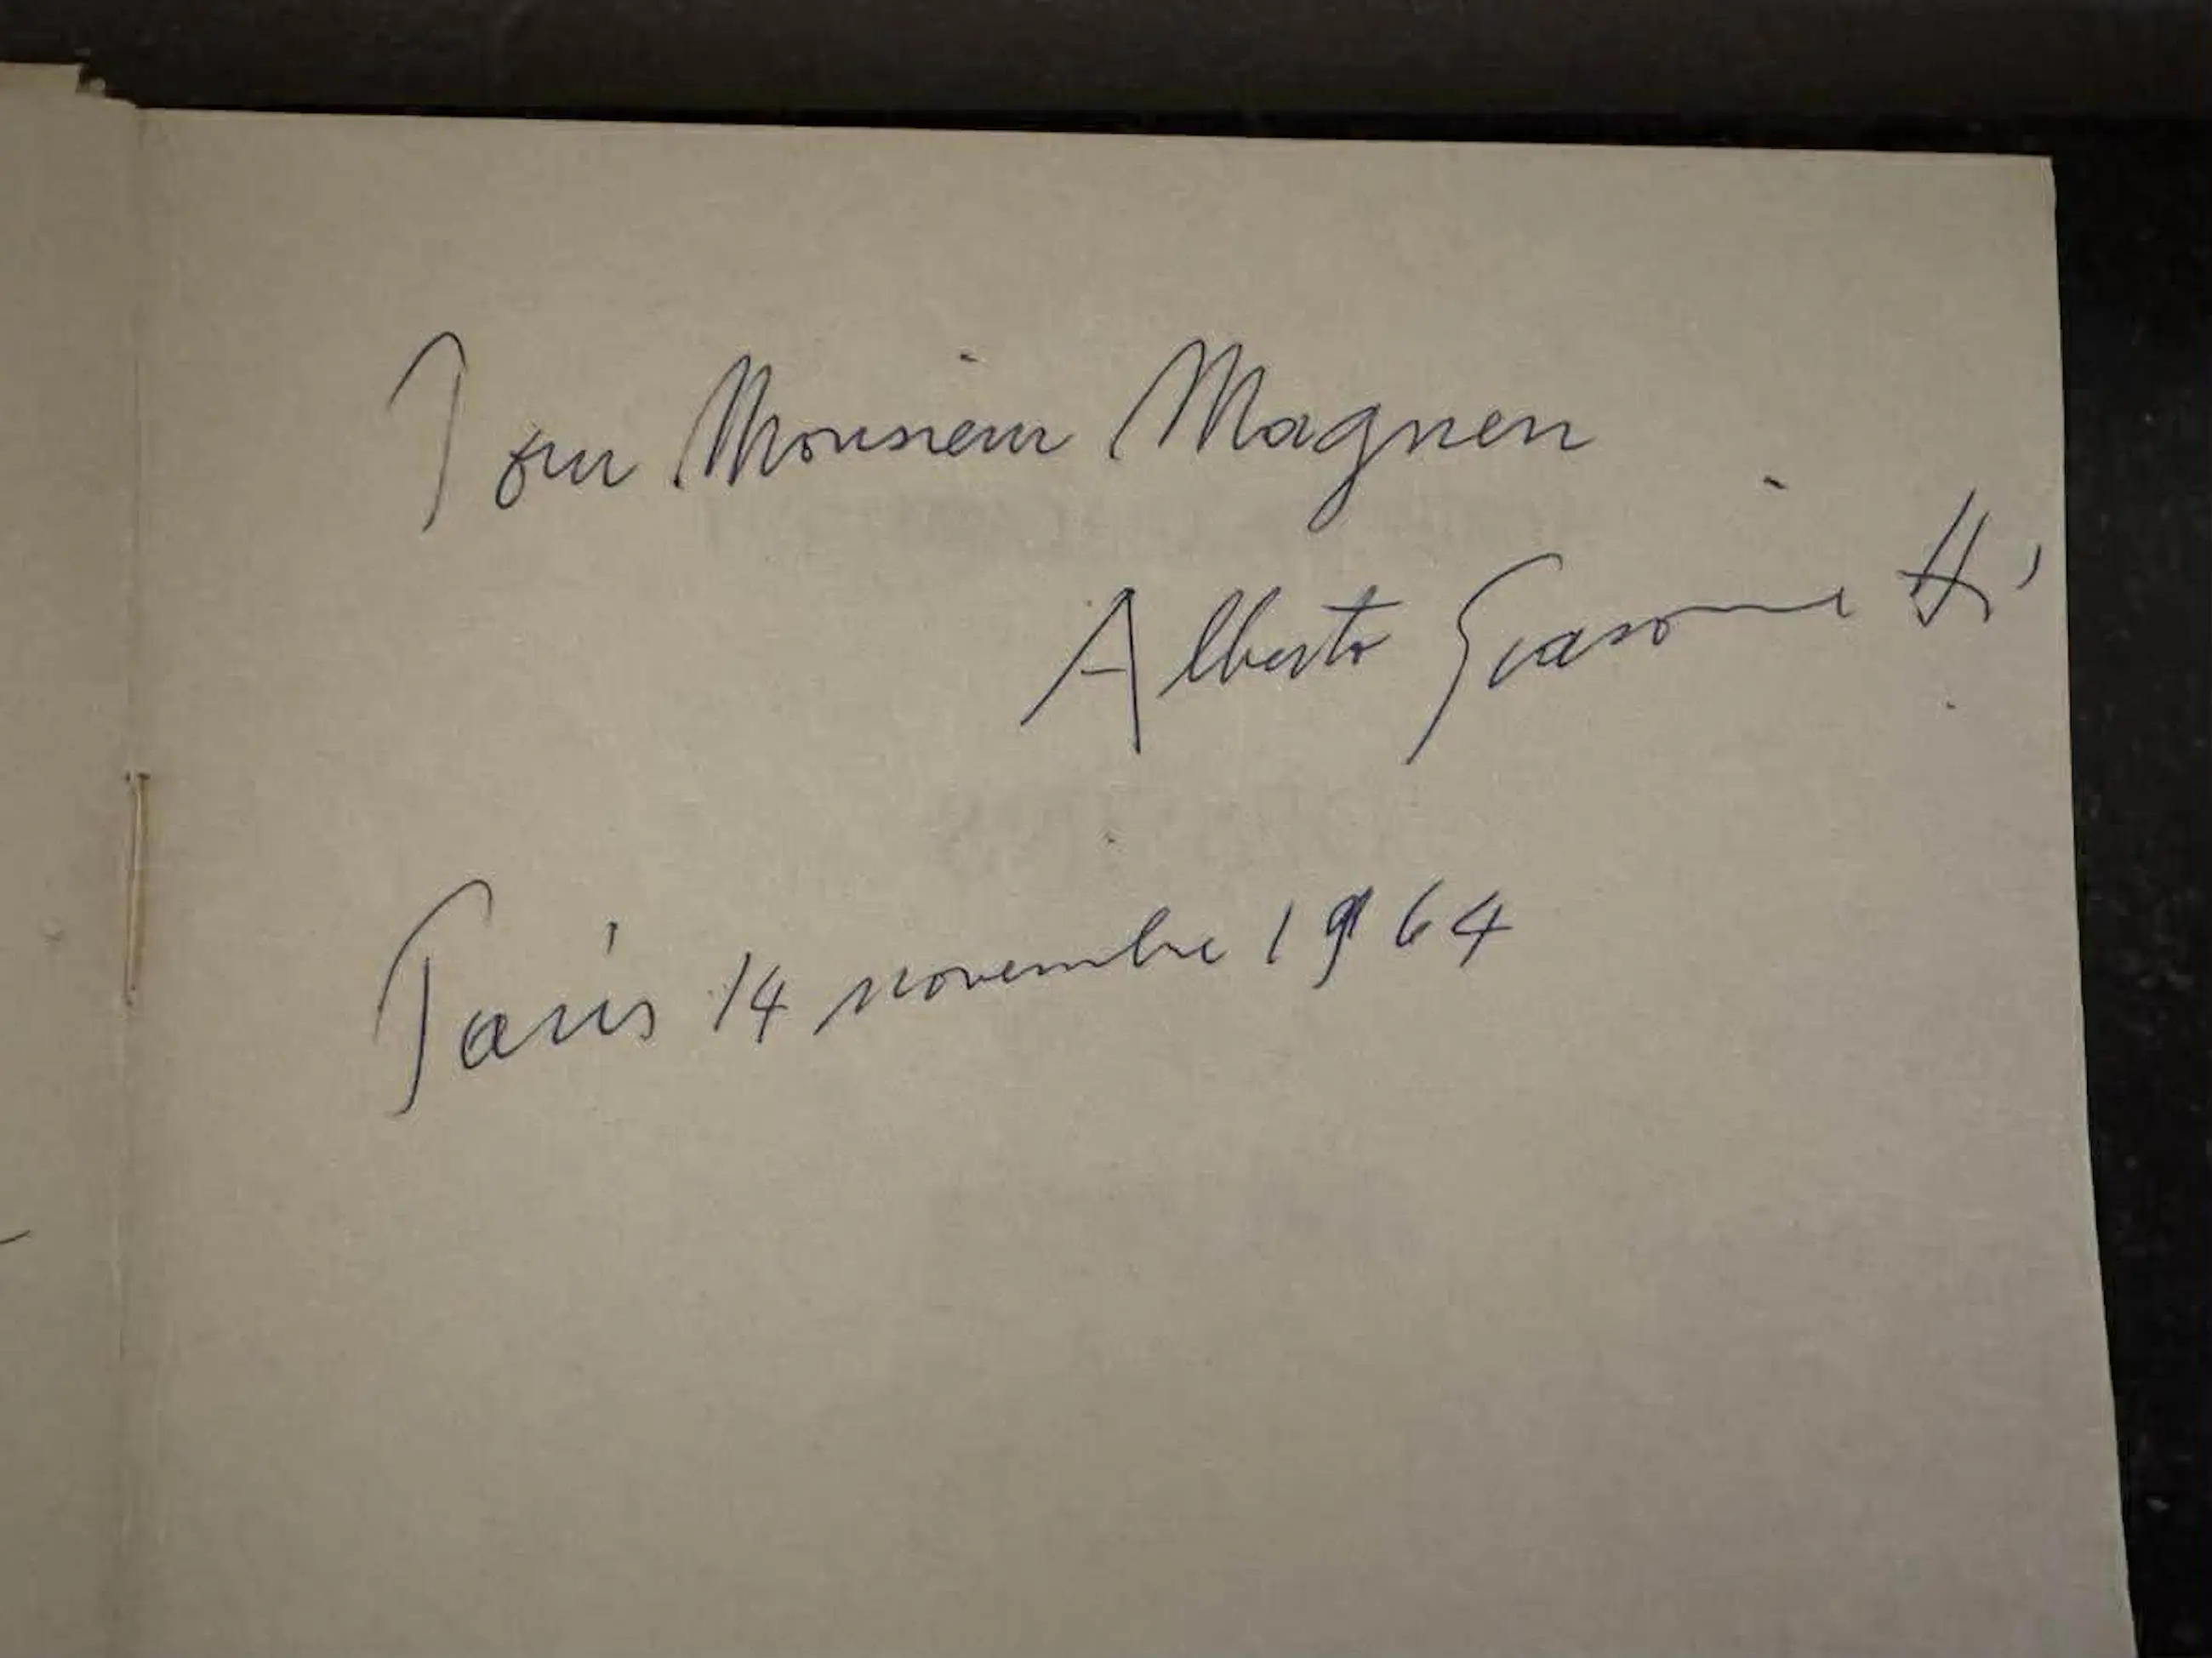 Pour Monsieur Magnen
Alberto Giacometti
Paris 14 novembre 1964